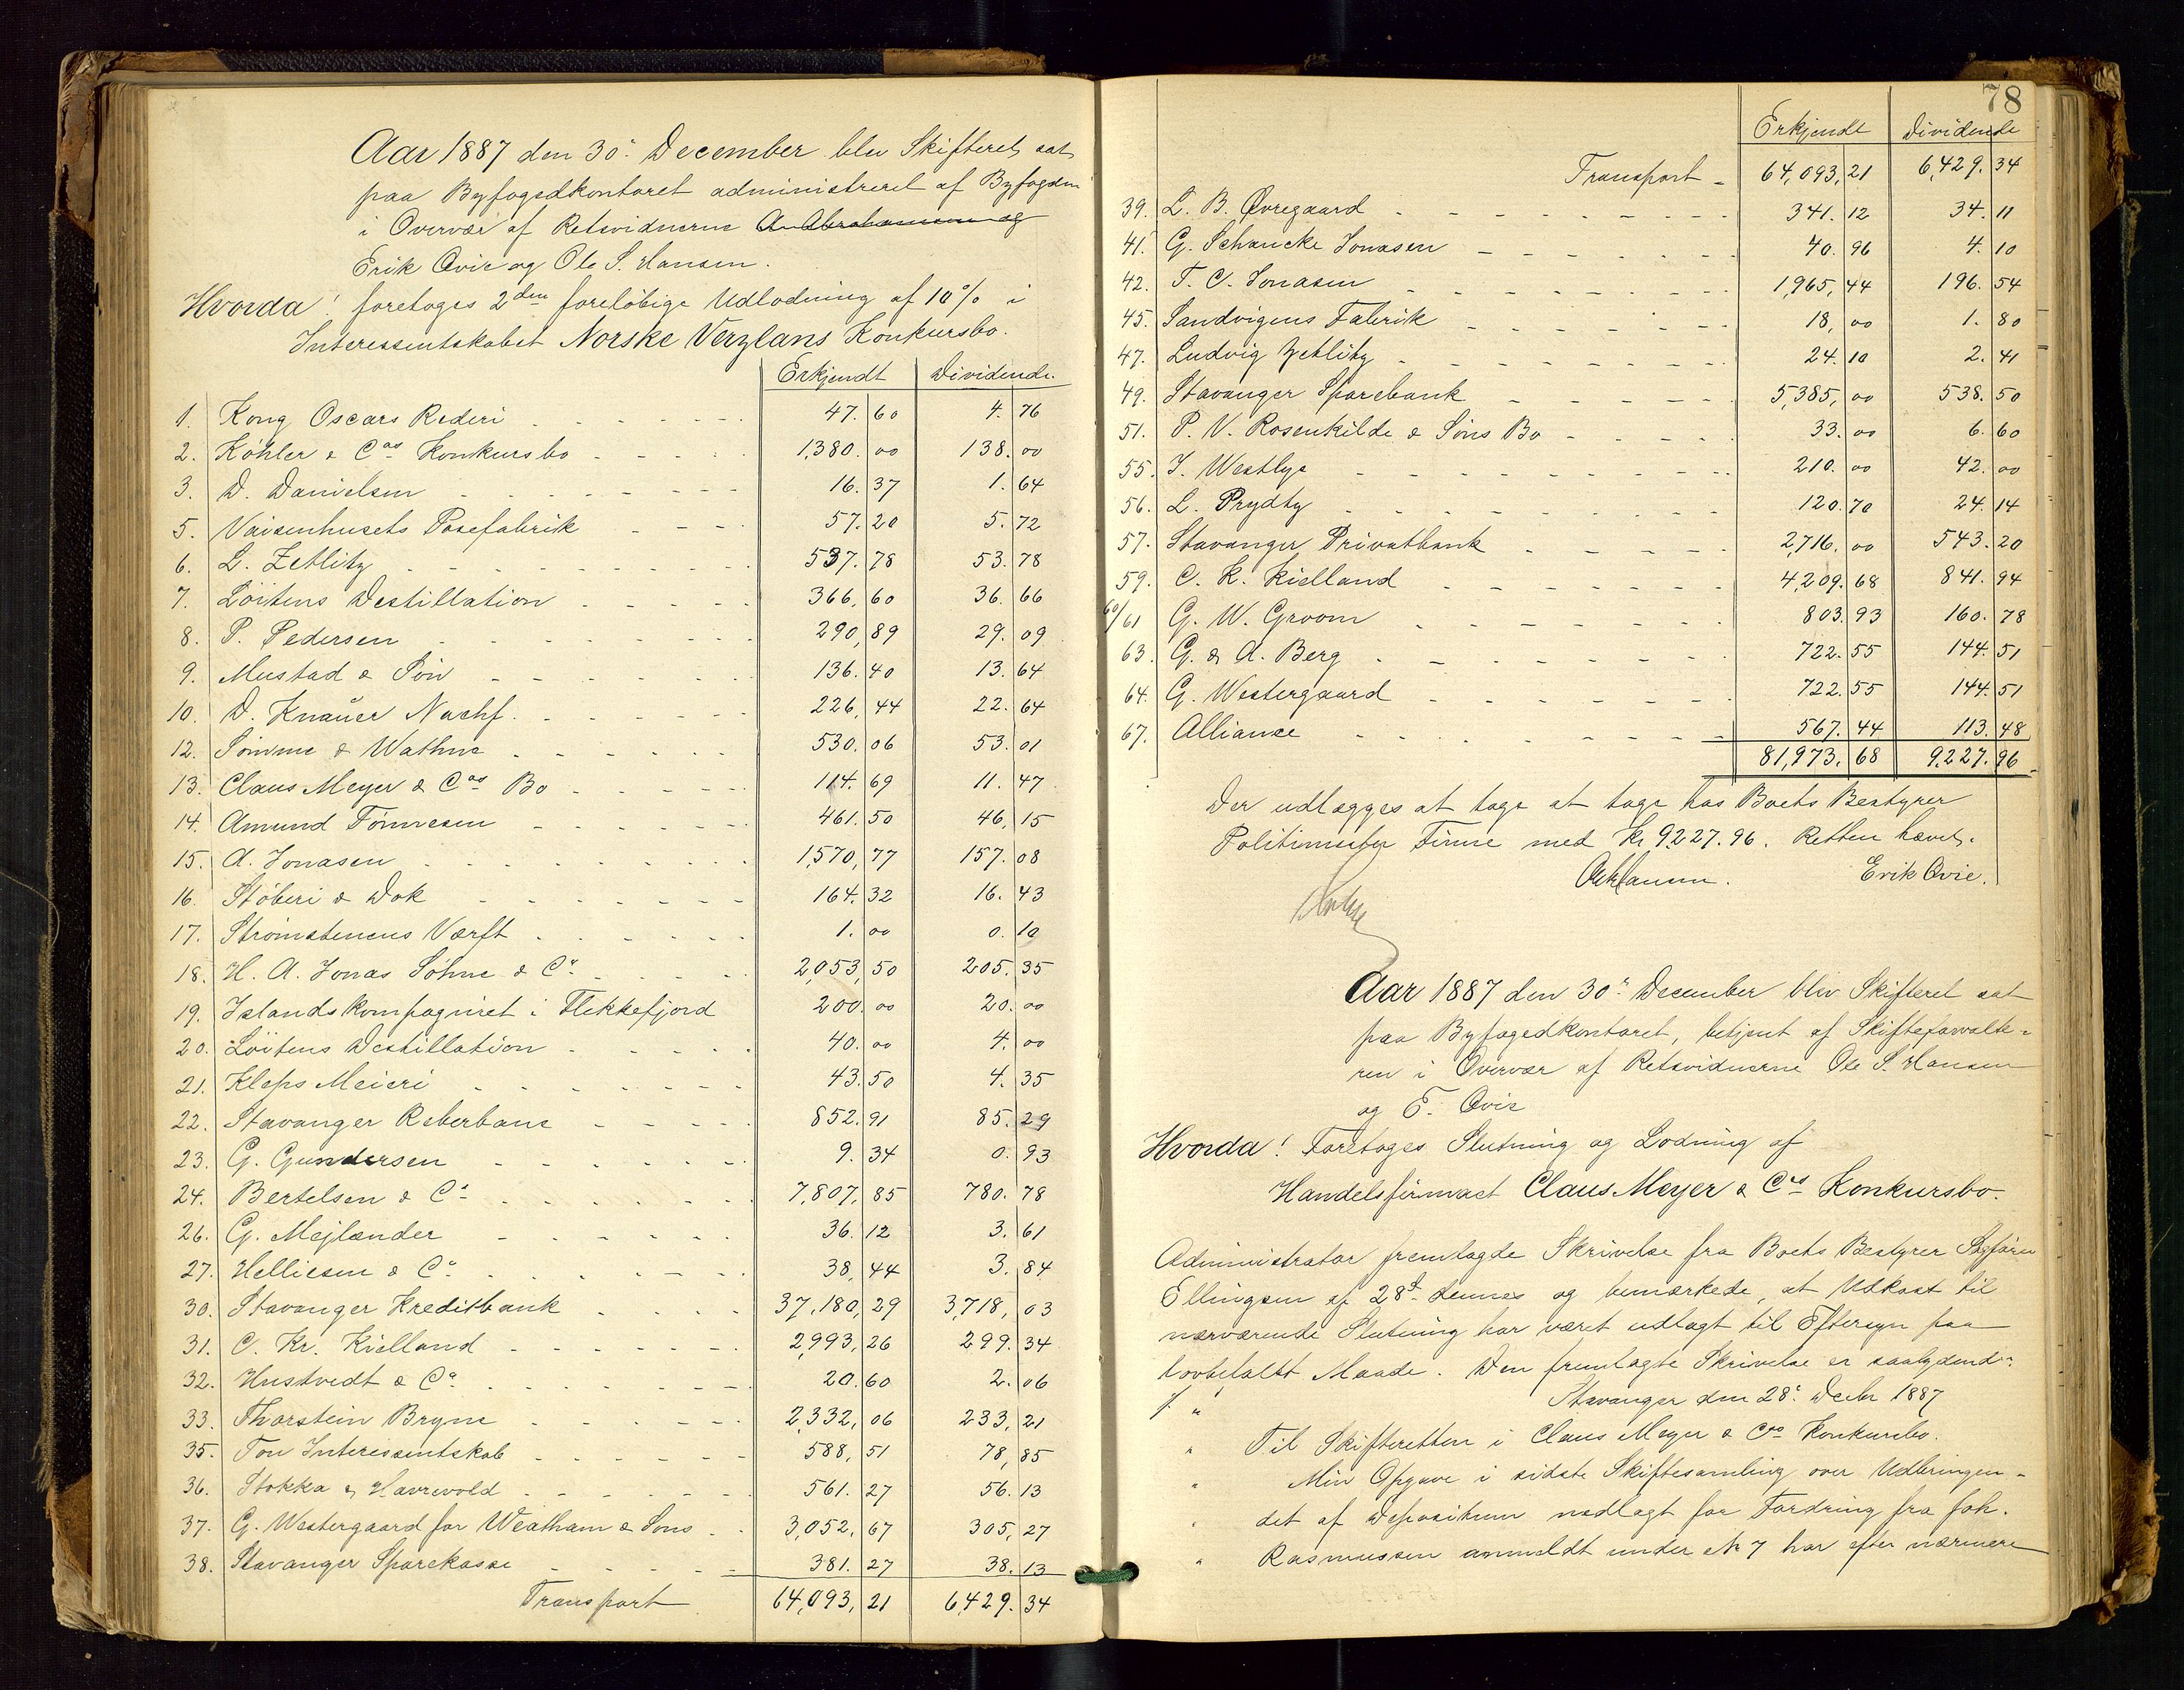 Aar 1887 den 30' December blev Skifteret sat
paa Byfogedkontoret administreret af Byfogden
i Overvær af Retsvidnerne A. Abrahamsen og
Erik Qvie og Ole S. Hansen.
Hvorda! foretoges 2den foreløbige Udlodning af 10% i
Interessentskabet Norske Verzlans Konkursbo.
Erkjendt Dividende.
1. Kong Oscars Rederi 47.60 4.76
2. Köhler & Cos Konkursbo 1,380.00 138.00
3. D. Danielsen 16.37 1.64
5. Vaisenhusets Posefabrik 57.20 5.72
6. L. Zetlitz 537.78 53.78
7. Löitens Destillation 366.60 36.66
8. P. Pedersen 290,89 29.09
9. Mustad & Søn 136.40 13.64
10. D. Knauer Nachf. 226,44 22.64
12. Sömme & Wathne 530.06 53.01
13. Claus Meyer & Cos Bo 114.69 11.47
14. Amund Tönnesen 461.50 46,15
15. A. Jonasen 1,570,77 157.08
16. Støberi & Dok 164.32 16.43
17. Strømstenens Værft 1.00 0.10
18. H. A. Jonas Söhne & Co 2,053,50 205.35
19. Islandskompagniet i Flekkefjord 200.00 20.00
20. Löitens Destillation 40.00 4.00
21. Kleps Meieri 43.50 4.35
22. Stavanger Reberbane 852.91 85.29
23. G. Gundersen 9.34 0.93
24. Bertelsen & Co 7,807,85 780.78
26. G. Mejlænder 36.12 3.61
27. Helliesen & Co 38,44 3.84
30. Stavanger Kreditbank 37,180,29 3,718,03
31. C. Kr. Kielland 2,993,26 299.34
32. Hustvedt & Co 20.60 2.06
33. Thorstein Bryne 2,332,06 233,21
35. Tou Interessentskab 588,51 78,85
36. Stokka & Havrevold 561.27 56.13
37. G. Westergaard for Weatham & Sons 3,052,67 305,27
38. Stavanger Sparekasse 381.27 38.13
Transport 64,093,21 6,429.34
78
Erkjendt Dividende
Transport 64,093,21 6,429.34
39. L. B. Øvregaard 341.12 34.11
41. G. Schancke Jonasen 40.96 4.10
42. T. C. Jonasen 1,965,44 196.54
45. Sandvigens Fabrik 18,00 1.80
47. Ludvig Zetlitz 24.10 2.41
49. Stavanger Sparebank 5,385,00 538.50
51. P. V. Rosenkilde & Søns Bo 33.00 6.60
55. J. Westlye 210.00 42.00
56. L. Prydtz 120.70 24.14
57. Stavanger Privatbank 2,716.00 543.20
59. C. K. Kielland 4,209.68 841.94
60/61 G. W. Groom 803.93 160.78
63. G. & A. Berg 722.55 144.51
64. G. Westergaard 722.55 144.51
67. Alliance 567.44 113.48
81,973.68 9,227.96
Der udlægges at tage at tage hos Boets Bestyrer
Politimester Finne med Kr 9,227.96. Retten hævet.
Erik Qvie.
Aar 1887 den 30' December blev Skifteret sat
paa Byfogedkontoret, betjent af Skifteforvalte-
ren i Overvær af Retsvidnerne Ole S. Hansen
og E. Qvie
Hvorda! Foretoges Slutning og Lodning af
Handelsfirmaet Claus Meyer & Cos Konkursbo.
Administrator fremlagde Skrivelse fra Boets Bestyrer Sagfører
Ellingsen af 28de dennes og bemærkede, at Udkast til
nærværende Slutning har været udlagt til Eftersyn paa
lovbefalet Maade. Den fremlagte Skrivelse er saalydende:
" Stavanger den 28' Decbr 1887
" Til Skifteretten i Claus Meyer & Cos Konkursbo.
" Min Opgave i sidste Skiftesamling over Udbringen-
" det af Depositum nedlagt for Fordring fra Joh.
" Rasmussen anmeldt under No 7 har efter nærmere